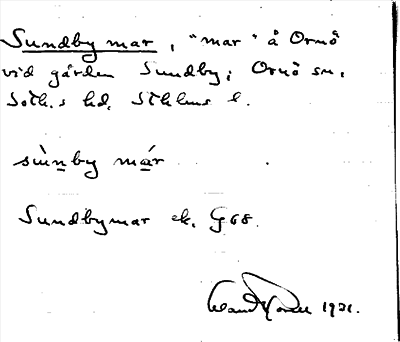 Sundbymar, "mar" å Ornö
vid gården Sundby; Ornö sn.
Soth.s hd. Sthlms l.
sùn̲by ma̲r
Sundbymar ek. G 68.
1921.